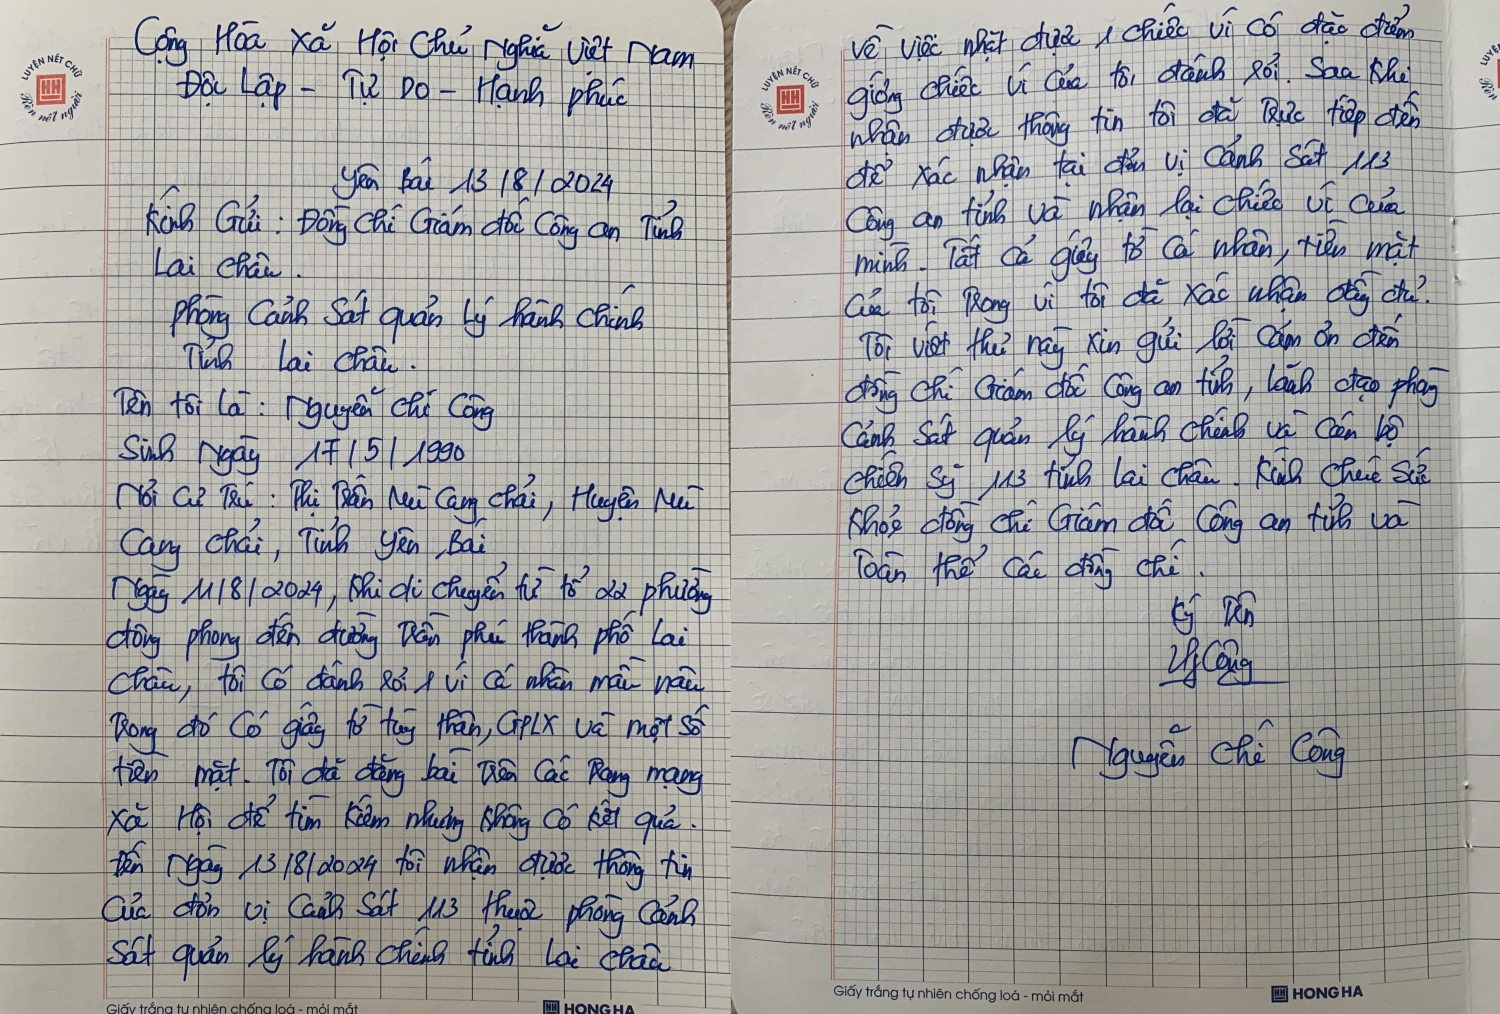 Cộng Hòa Xã Hội Chủ Nghĩa Việt Nam
Độc Lập - Tự Do - Hạnh phúc
LUYỆN NÉT CHỮ
Rèn nết người
Yên Bái 13/8/2024
Kính Gửi: Đồng Chí Giám đốc Công an Tỉnh
Lai Châu.
Phòng Cảnh Sát quản Lý hành Chính
Tỉnh Lai Châu.
Tên tôi Là: Nguyễn Chí Công
Sinh Ngày 17/5/1990
Nơi Cư Trú: Thị Trấn Mù Cang Chải, Huyện Mù
Cang Chải, Tỉnh Yên Bái
Ngày 11/8/2024, khi di chuyển từ tổ 22 phường
đông phong đến đường Trần phú thành phố Lai
Châu, tôi Có đánh rơi 1 ví Cá nhân màu nâu
Trong đó Có giấy tờ tùy thân, GPLX và một Số
tiền mặt. Tôi đã đăng bài trên Các Trang mạng
Xã Hội để tìm kiếm nhưng không Có kết quả.
Đến Ngày 13/8/2024 tôi nhận được thông tin
Của đơn vị Cảnh Sát 113 thuộc phòng Cảnh
Sát quản lý hành chính tỉnh Lai Châu
Giấy trắng tự nhiên chống loá - mỏi mắt
HONG HA
LUYỆN NÉT CHỮ
Rèn nết người
về việc nhặt được 1 chiếc ví Có đặc điểm
giống chiếc ví Của tôi đánh rơi. Sau khi
nhận được thông tin tôi đã Trực tiếp đến
để xác nhận tại đơn vị Cảnh Sát 113
Công an tỉnh và nhận lại chiếc ví Của
mình. Tất Cả giấy tờ Cá nhân, tiền mặt
Của tôi Trong ví tôi đã xác nhận đầy đủ.
Tôi viết thư này xin gửi lời Cảm ơn đến
đồng chí Giám đốc Công an tỉnh, lãnh đạo phòng
Cảnh Sát quản lý hành chính và Cán bộ
chiến Sỹ 113 tỉnh Lai Châu. Kính chúc Sức
khỏe đồng chí Giám đốc Công an tỉnh và
Toàn thể các đồng chí.
Ký Tên
Công
Nguyễn Chí Công
Giấy trắng tự nhiên chống loá - mỏi mắt
HONG HA